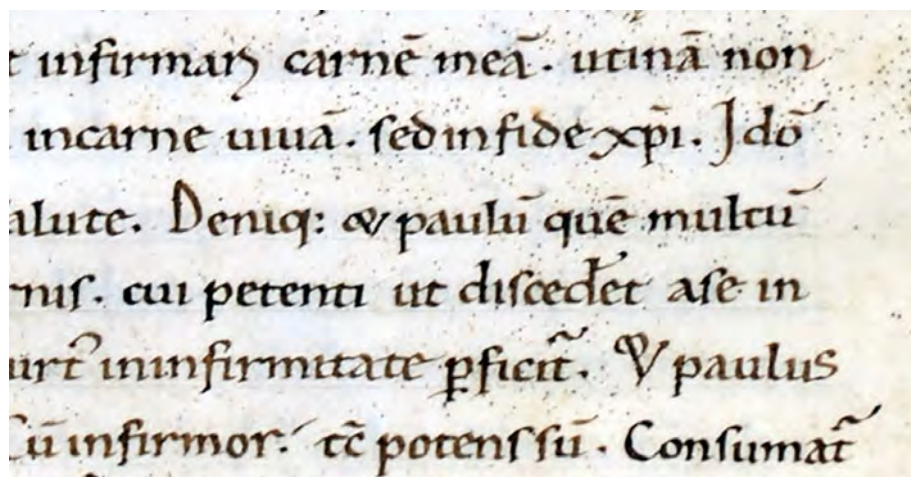 infirmari carnē meā. utinā non
incarne uiuā. sed infide xp̄i. Idō
alute. Deniq: & paulū quē multū
nis. cui petenti ut discederet ase in
urt᾽ ininfirmitate ꝑficit᷑. & paulus
ū infirmor. tc̄ potens sū. Consumat᷑